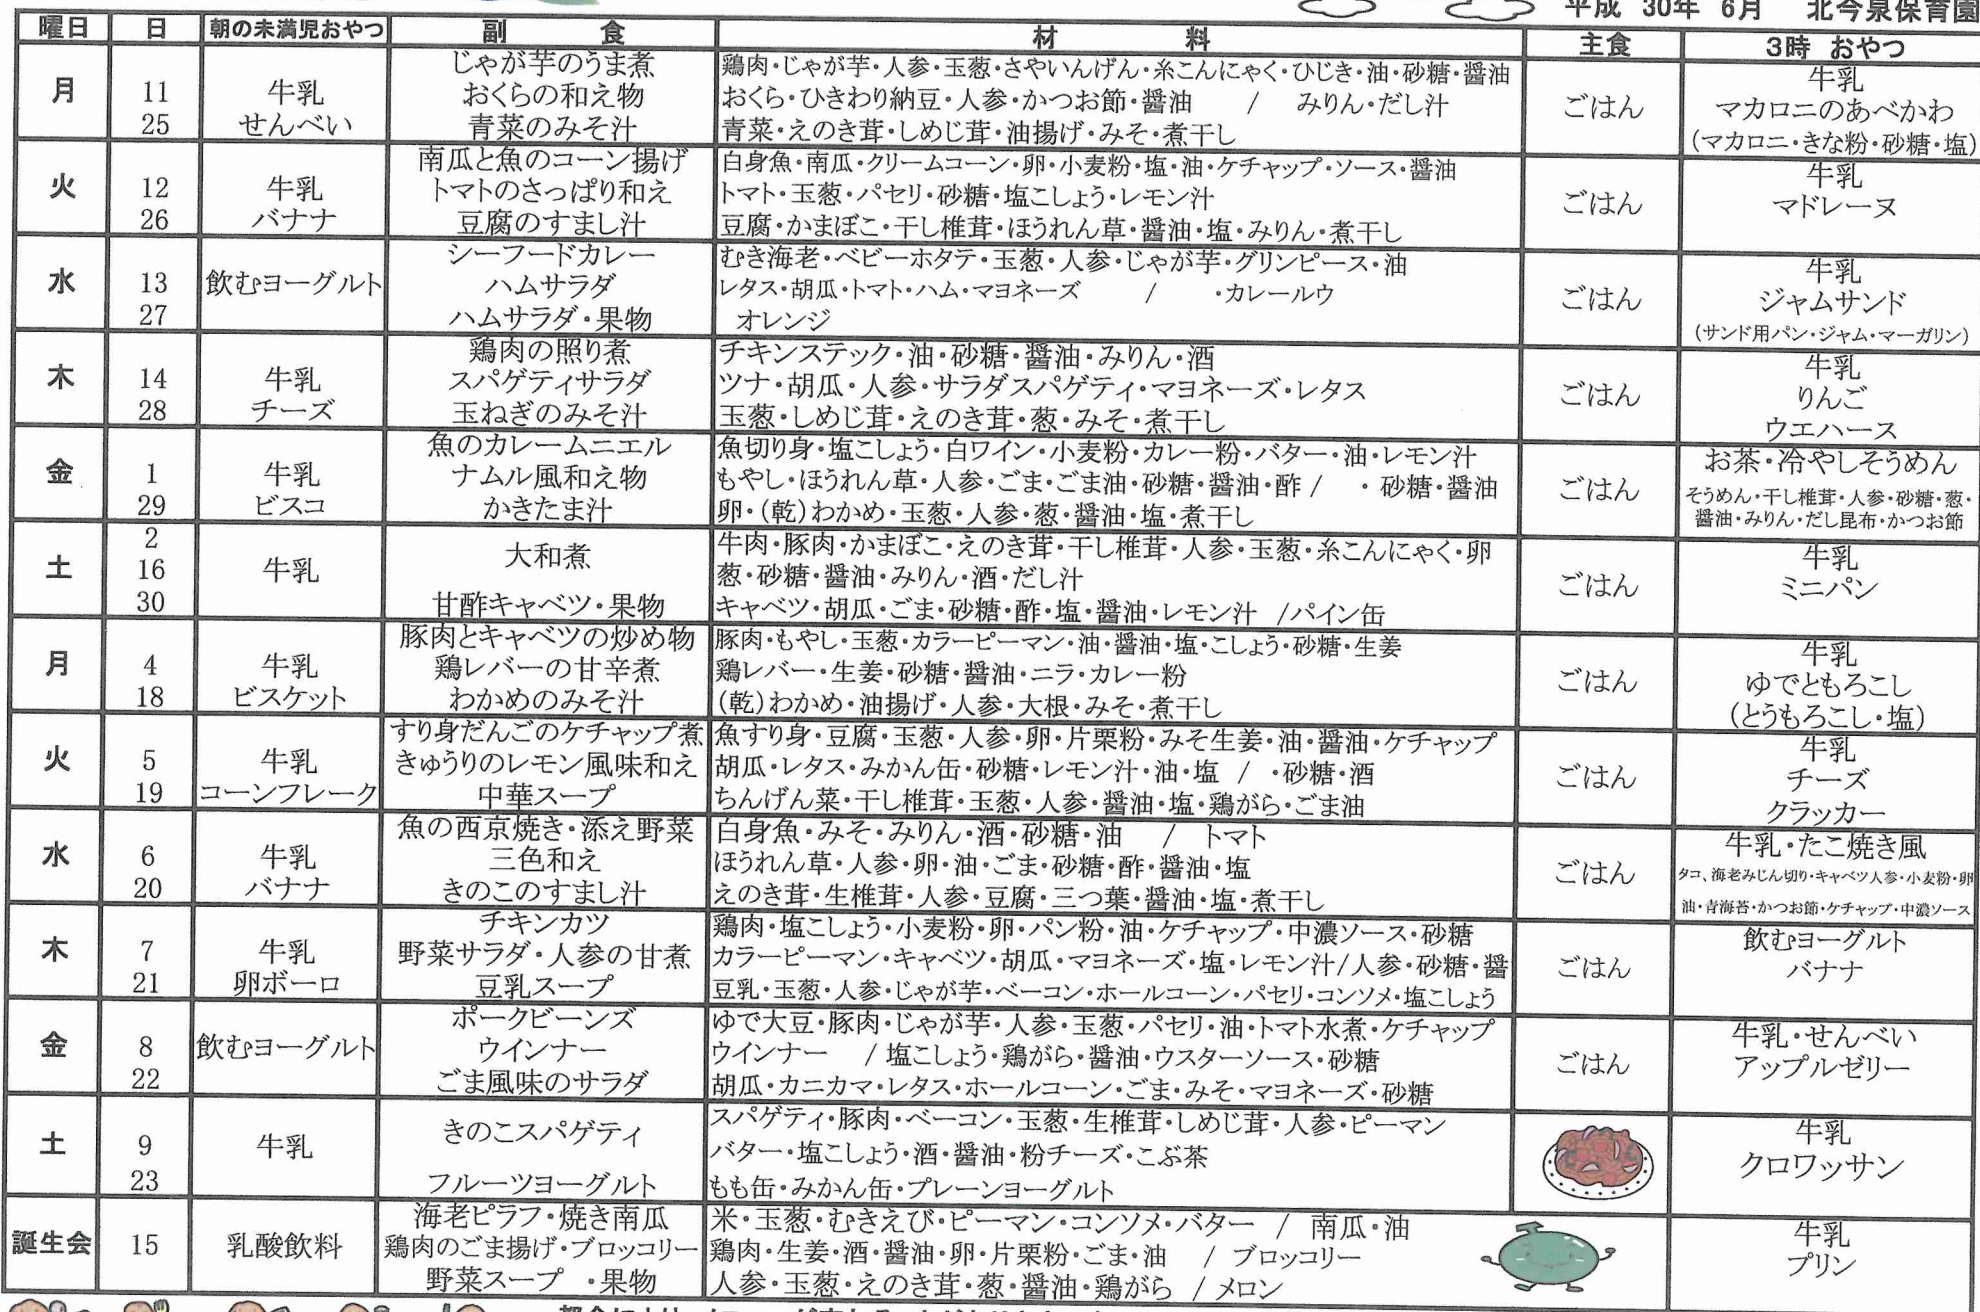 平成 30年 6月 北今泉保育園
曜日 日 朝の未満児おやつ 副 食 材 料 主食 3時 おやつ
月
11
25
牛乳
せんべい
じゃが芋のうま煮
おくらの和え物
青菜のみそ汁
鶏肉・じゃが芋・人参・玉葱・さやいんげん・糸こんにゃく・ひじき・油・砂糖・醤油
おくら・ひきわり納豆・人参・かつお節・醤油 / みりん・だし汁
青菜・えのき茸・しめじ茸・油揚げ・みそ・煮干し
ごはん
牛乳
マカロニのあべかわ
(マカロニ・きな粉・砂糖・塩)
火
12
26
牛乳
バナナ
南瓜と魚のコーン揚げ
トマトのさっぱり和え
豆腐のすまし汁
白身魚・南瓜・クリームコーン・卵・小麦粉・塩・油・ケチャップ・ソース・醤油
トマト・玉葱・パセリ・砂糖・塩こしょう・レモン汁
豆腐・かまぼこ・干し椎茸・ほうれん草・醤油・塩・みりん・煮干し
ごはん
牛乳
マドレーヌ
水
13
27
飲むヨーグルト
シーフードカレー
ハムサラダ
ハムサラダ・果物
むき海老・ベビーホタテ・玉葱・人参・じゃが芋・グリンピース・油
レタス・胡瓜・トマト・ハム・マヨネーズ / ・カレールウ
オレンジ
ごはん
牛乳
ジャムサンド
(サンド用パン・ジャム・マーガリン)
木
14
28
牛乳
チーズ
鶏肉の照り煮
スパゲティサラダ
玉ねぎのみそ汁
チキンステック・油・砂糖・醤油・みりん・酒
ツナ・胡瓜・人参・サラダスパゲティ・マヨネーズ・レタス
玉葱・しめじ茸・えのき茸・葱・みそ・煮干し
ごはん
牛乳
りんご
ウエハース
金
1
29
牛乳
ビスコ
魚のカレームニエル
ナムル風和え物
かきたま汁
魚切り身・塩こしょう・白ワイン・小麦粉・カレー粉・バター・油・レモン汁
もやし・ほうれん草・人参・ごま・ごま油・砂糖・醤油・酢 / ・砂糖・醤油
卵・(乾)わかめ・玉葱・人参・葱・醤油・塩・煮干し
ごはん
お茶・冷やしそうめん
そうめん・干し椎茸・人参・砂糖・葱・
醤油・みりん・だし昆布・かつお節
土
2
16
30
牛乳
大和煮
甘酢キャベツ・果物
牛肉・豚肉・かまぼこ・えのき茸・干し椎茸・人参・玉葱・糸こんにゃく・卵
葱・砂糖・醤油・みりん・酒・だし汁
キャベツ・胡瓜・ごま・砂糖・酢・塩・醤油・レモン汁 /パイン缶
ごはん
牛乳
ミニパン
月
4
18
牛乳
ビスケット
豚肉とキャベツの炒め物
鶏レバーの甘辛煮
わかめのみそ汁
豚肉・もやし・玉葱・カラーピーマン・油・醤油・塩・こしょう・砂糖・生姜
鶏レバー・生姜・砂糖・醤油・ニラ・カレー粉
(乾)わかめ・油揚げ・人参・大根・みそ・煮干し
ごはん
牛乳
ゆでともろこし
(とうもろこし・塩)
火
5
19
牛乳
コーンフレーク
すり身だんごのケチャップ煮
きゅうりのレモン風味和え
中華スープ
魚すり身・豆腐・玉葱・人参・卵・片栗粉・みそ生姜・油・醤油・ケチャップ
胡瓜・レタス・みかん缶・砂糖・レモン汁・油・塩 / ・砂糖・酒
ちんげん菜・干し椎茸・玉葱・人参・醤油・塩・鶏がら・ごま油
ごはん
牛乳
チーズ
クラッカー
水
6
20
牛乳
バナナ
魚の西京焼き・添え野菜
三色和え
きのこのすまし汁
白身魚・みそ・みりん・酒・砂糖・油 / トマト
ほうれん草・人参・卵・油・ごま・砂糖・酢・醤油・塩
えのき茸・生椎茸・人参・豆腐・三つ葉・醤油・塩・煮干し
ごはん
牛乳・たこ焼き風
タコ、海老みじん切り・キャベツ人参・小麦粉・卵
油・青海苔・かつお節・ケチャップ・中濃ソース
木
7
21
牛乳
卵ボーロ
チキンカツ
野菜サラダ・人参の甘煮
豆乳スープ
鶏肉・塩こしょう・小麦粉・卵・パン粉・油・ケチャップ・中濃ソース・砂糖
カラーピーマン・キャベツ・胡瓜・マヨネーズ・塩・レモン汁/人参・砂糖・醤
豆乳・玉葱・人参・じゃが芋・ベーコン・ホールコーン・パセリ・コンソメ・塩こしょう
ごはん
飲むヨーグルト
バナナ
金
8
22
飲むヨーグルト
ポークビーンズ
ウインナー
ごま風味のサラダ
ゆで大豆・豚肉・じゃが芋・人参・玉葱・パセリ・油・トマト水煮・ケチャップ
ウインナー / 塩こしょう・鶏がら・醤油・ウスターソース・砂糖
胡瓜・カニカマ・レタス・ホールコーン・ごま・みそ・マヨネーズ・砂糖
ごはん
牛乳・せんべい
アップルゼリー
土
9
23
牛乳
きのこスパゲティ
フルーツヨーグルト
スパゲティ・豚肉・ベーコン・玉葱・生椎茸・しめじ茸・人参・ピーマン
バター・塩こしょう・酒・醤油・粉チーズ・こぶ茶
もも缶・みかん缶・プレーンヨーグルト
牛乳
クロワッサン
誕生会
15
乳酸飲料
海老ピラフ・焼き南瓜
鶏肉のごま揚げ・ブロッコリー
野菜スープ ・果物
米・玉葱・むきえび・ピーマン・コンソメ・バター / 南瓜・油
鶏肉・生姜・酒・醤油・卵・片栗粉・ごま・油 / ブロッコリー
人参・玉葱・えのき茸・葱・醤油・鶏がら / メロン
牛乳
プリン